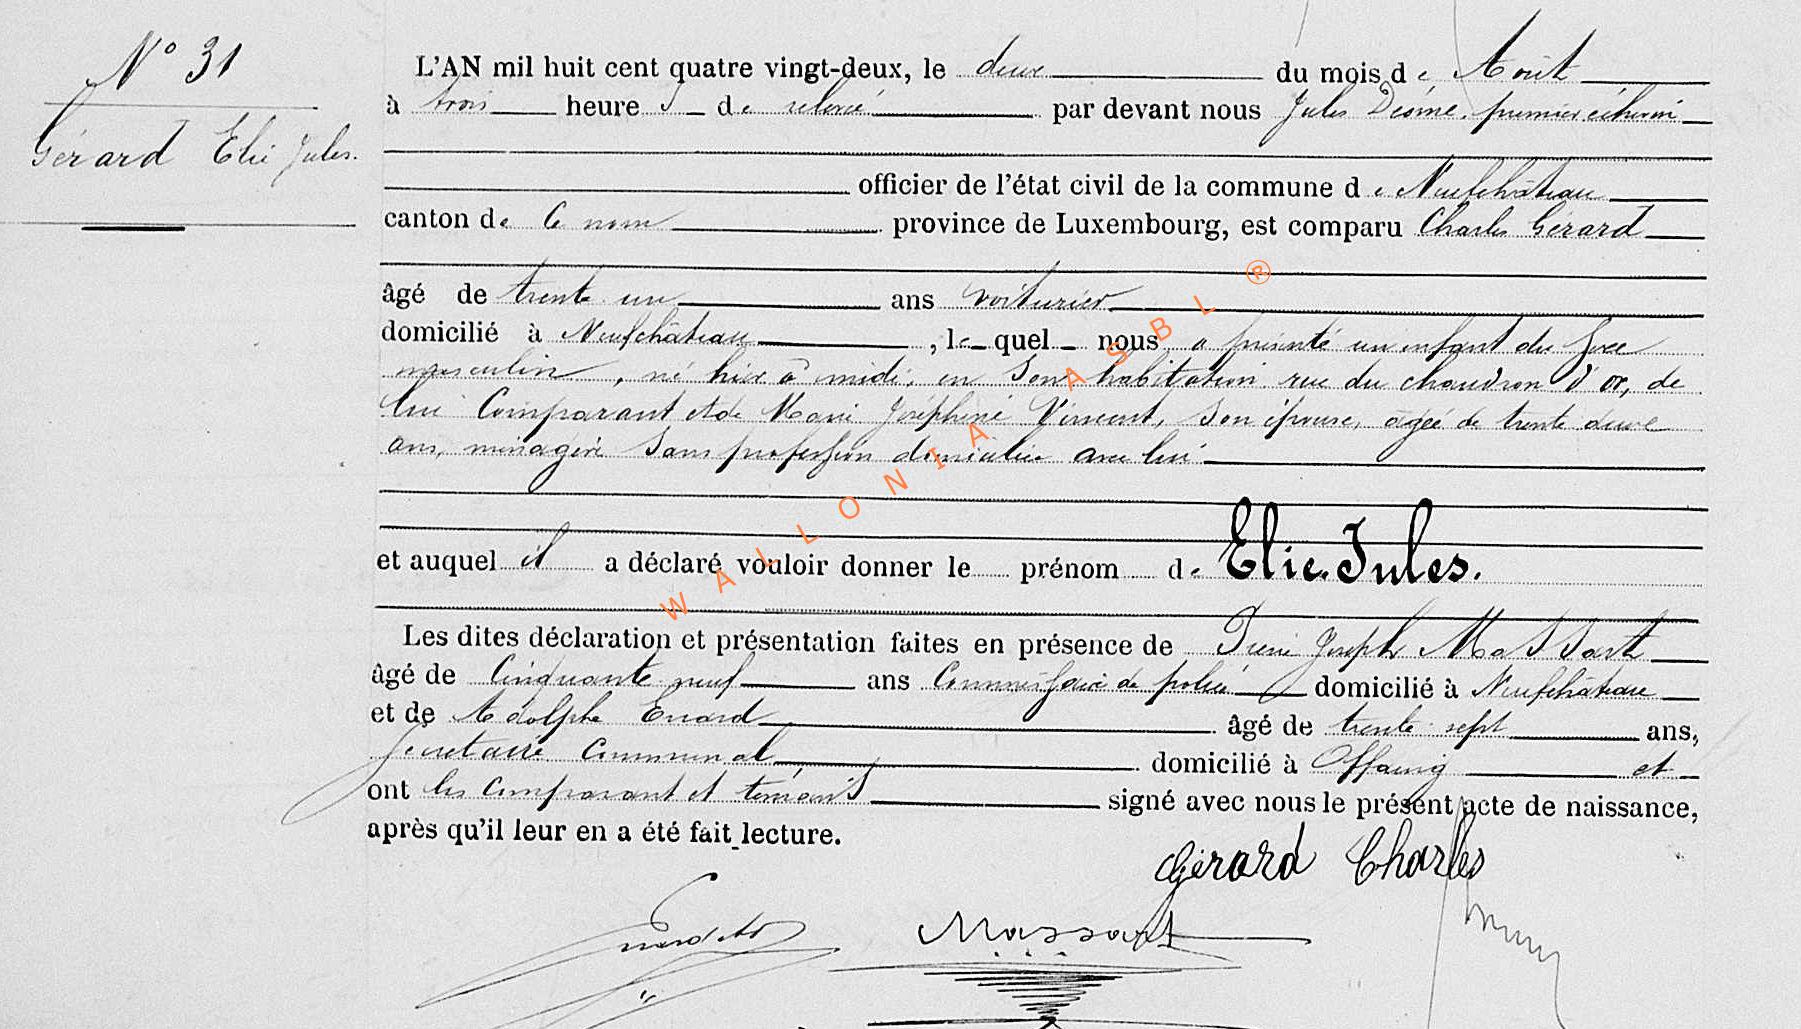 N° 31
Gérard Elie Jules.
L'AN mil huit cent quatre vingt-deux, le deux du mois de Août
à trois heures de relevé par devant nous Jules Déome, premier échevin
officier de l'état civil de la commune de Neufchâteau
canton de Ce nom province de Luxembourg, est comparu Charles Gérard
âgé de trente un ans voiturier
domicilié à Neufchâteau, lequel nous a présenté un infant du Sexe
masculin, né hier à midi, en Son habitation rue du chaudron d'or, de
lui Comparant et de Marie Joséphine Vincent, Son épouse, agée de trente deux
ans, ménagère Sans profession domiciliée avec lui
et auquel il a déclaré vouloir donner le prénom de Elie Jules.
Les dites déclaration et présentation faites en présence de Pierre Joseph Massart
âgé de Cinquante neuf ans Commissaire de police domicilié à Neufchâteau
et de Adolphe Evrard âgé de trente sept ans,
Secrétaire Communal domicilié à Offaing et
ont les Comparant et témoins signé avec nous le présent acte de naissance,
après qu'il leur en a été fait lecture.
Gérard Charles
Evrard Ad
Massart
WALLONIA ASBL ®